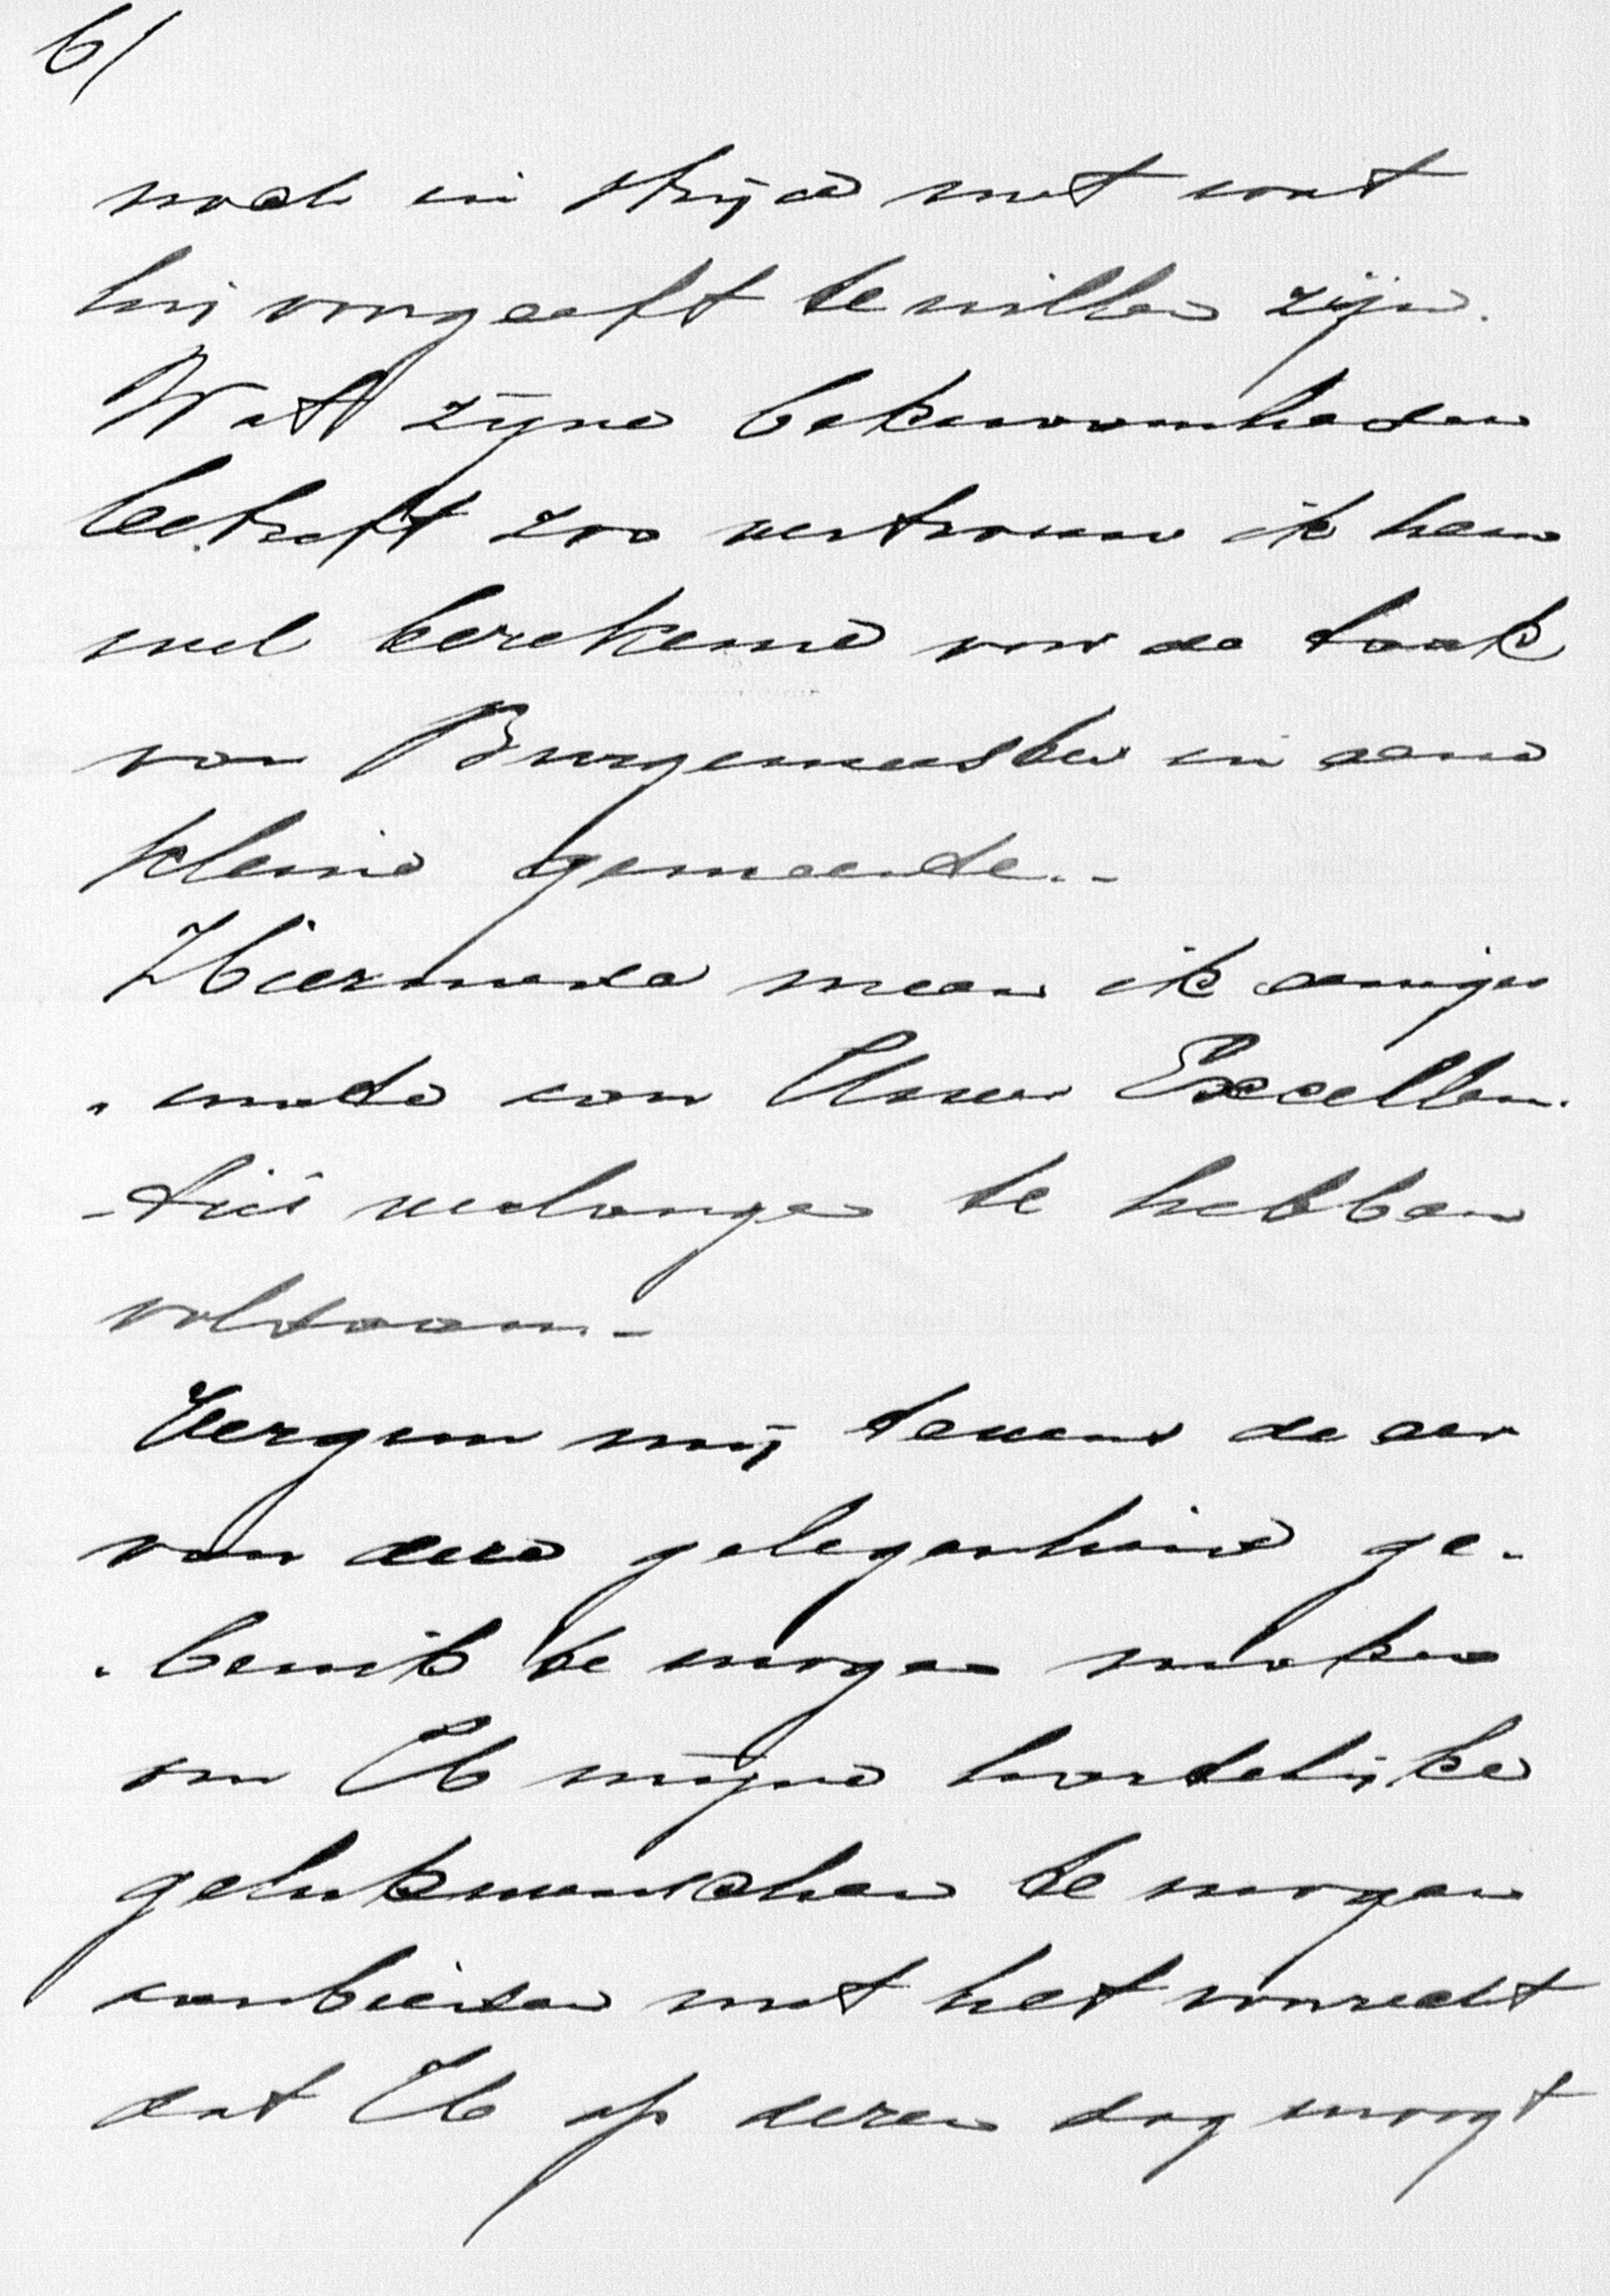 6/
noch in strijd met wat
hij voorgeeft te willen zijn.
Wat zijne bekwaamheden
betreft zoo vertrouw ik hem
wel berekend voor de taak
van Burgemeester in eene
kleine gemeente.-
Hiermede meen ik eeniger
-mate aan Uwer Excellen-
-tie's verlangen te hebben
voldaan.-
Vergun mij tevens de eer
van deze gelegenheid ge-
-bruik te mogen maken
om UE mijne hartelijke
gelukwenschen te mogen
aanbieden met het voorrecht
dat UE op dezen dag moogt